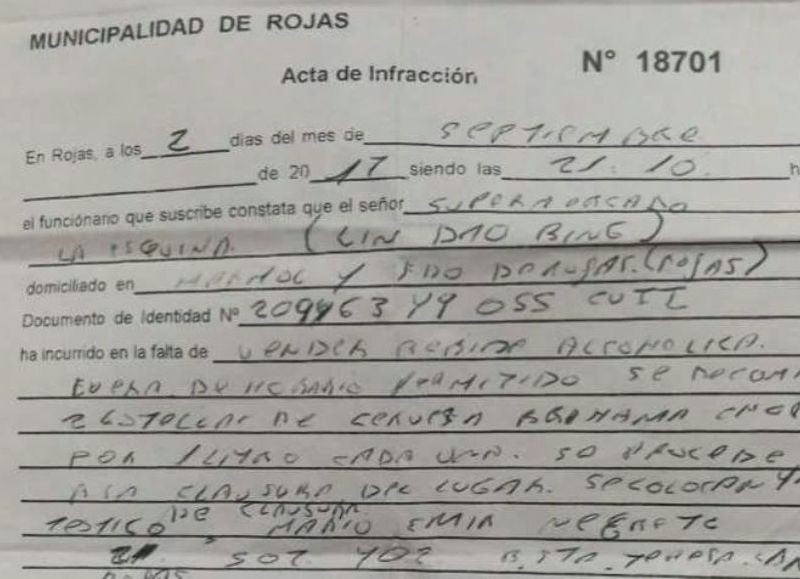 MUNICIPALIDAD DE ROJAS
Acta de Infracción Nº 18701
En Rojas, a los 2 días del mes de SEPTIEMBRE
de 20 17 siendo las 21:10. h
el funcionario que suscribe constata que el señor SUPERMERCADO
LA ESQUINA (LIN DAO BING)
domiciliado en Y (ROJAS)
Documento de Identidad Nº CUIT
ha incurrido en la falta de VENDER BEBIDA ALCOHOLICA.
FUERA DE HORARIO PERMITIDO SE
DE CERVEZA BRAHMA
POR 1 LITRO CADA UNA. SE PROCEDE
A LA CLAUSURA DEL LUGAR. SE COLOCAN
DE CLAUSURA
TESTIGO MARIO NEGRETE
B. STA. TERESA.